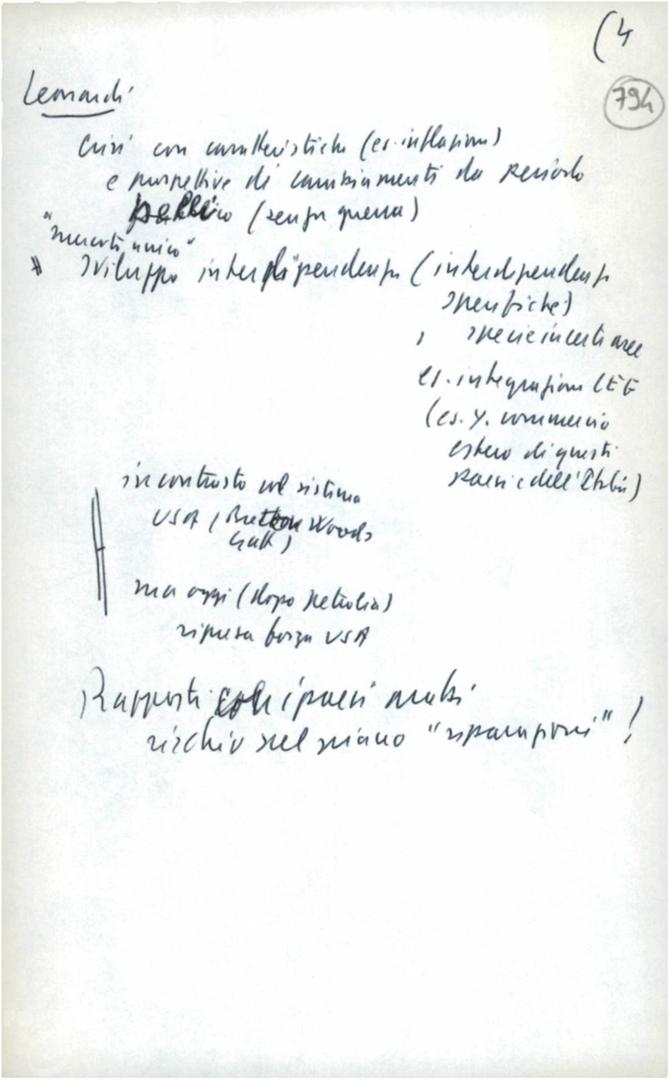 (4
794
Leonardi
Crisi con caratteristiche (es. inflazione)
e prospettive di cambiamenti da periodo
bellico (senza guerra)
"mercato unico"
Sviluppo interdipendenza (interdipendenza
specifiche)
, specie in certe aree
es. integrazione CEE
(es. % commercio
estero di questi
paesi e dell'Italia)
in contrasto col sistema
USA (Bretton Woods
Gatt)
ma oggi (dopo petrolio)
ripresa forza USA
Rapporti con i paesi arabi
rischio sul piano "riparazioni" !